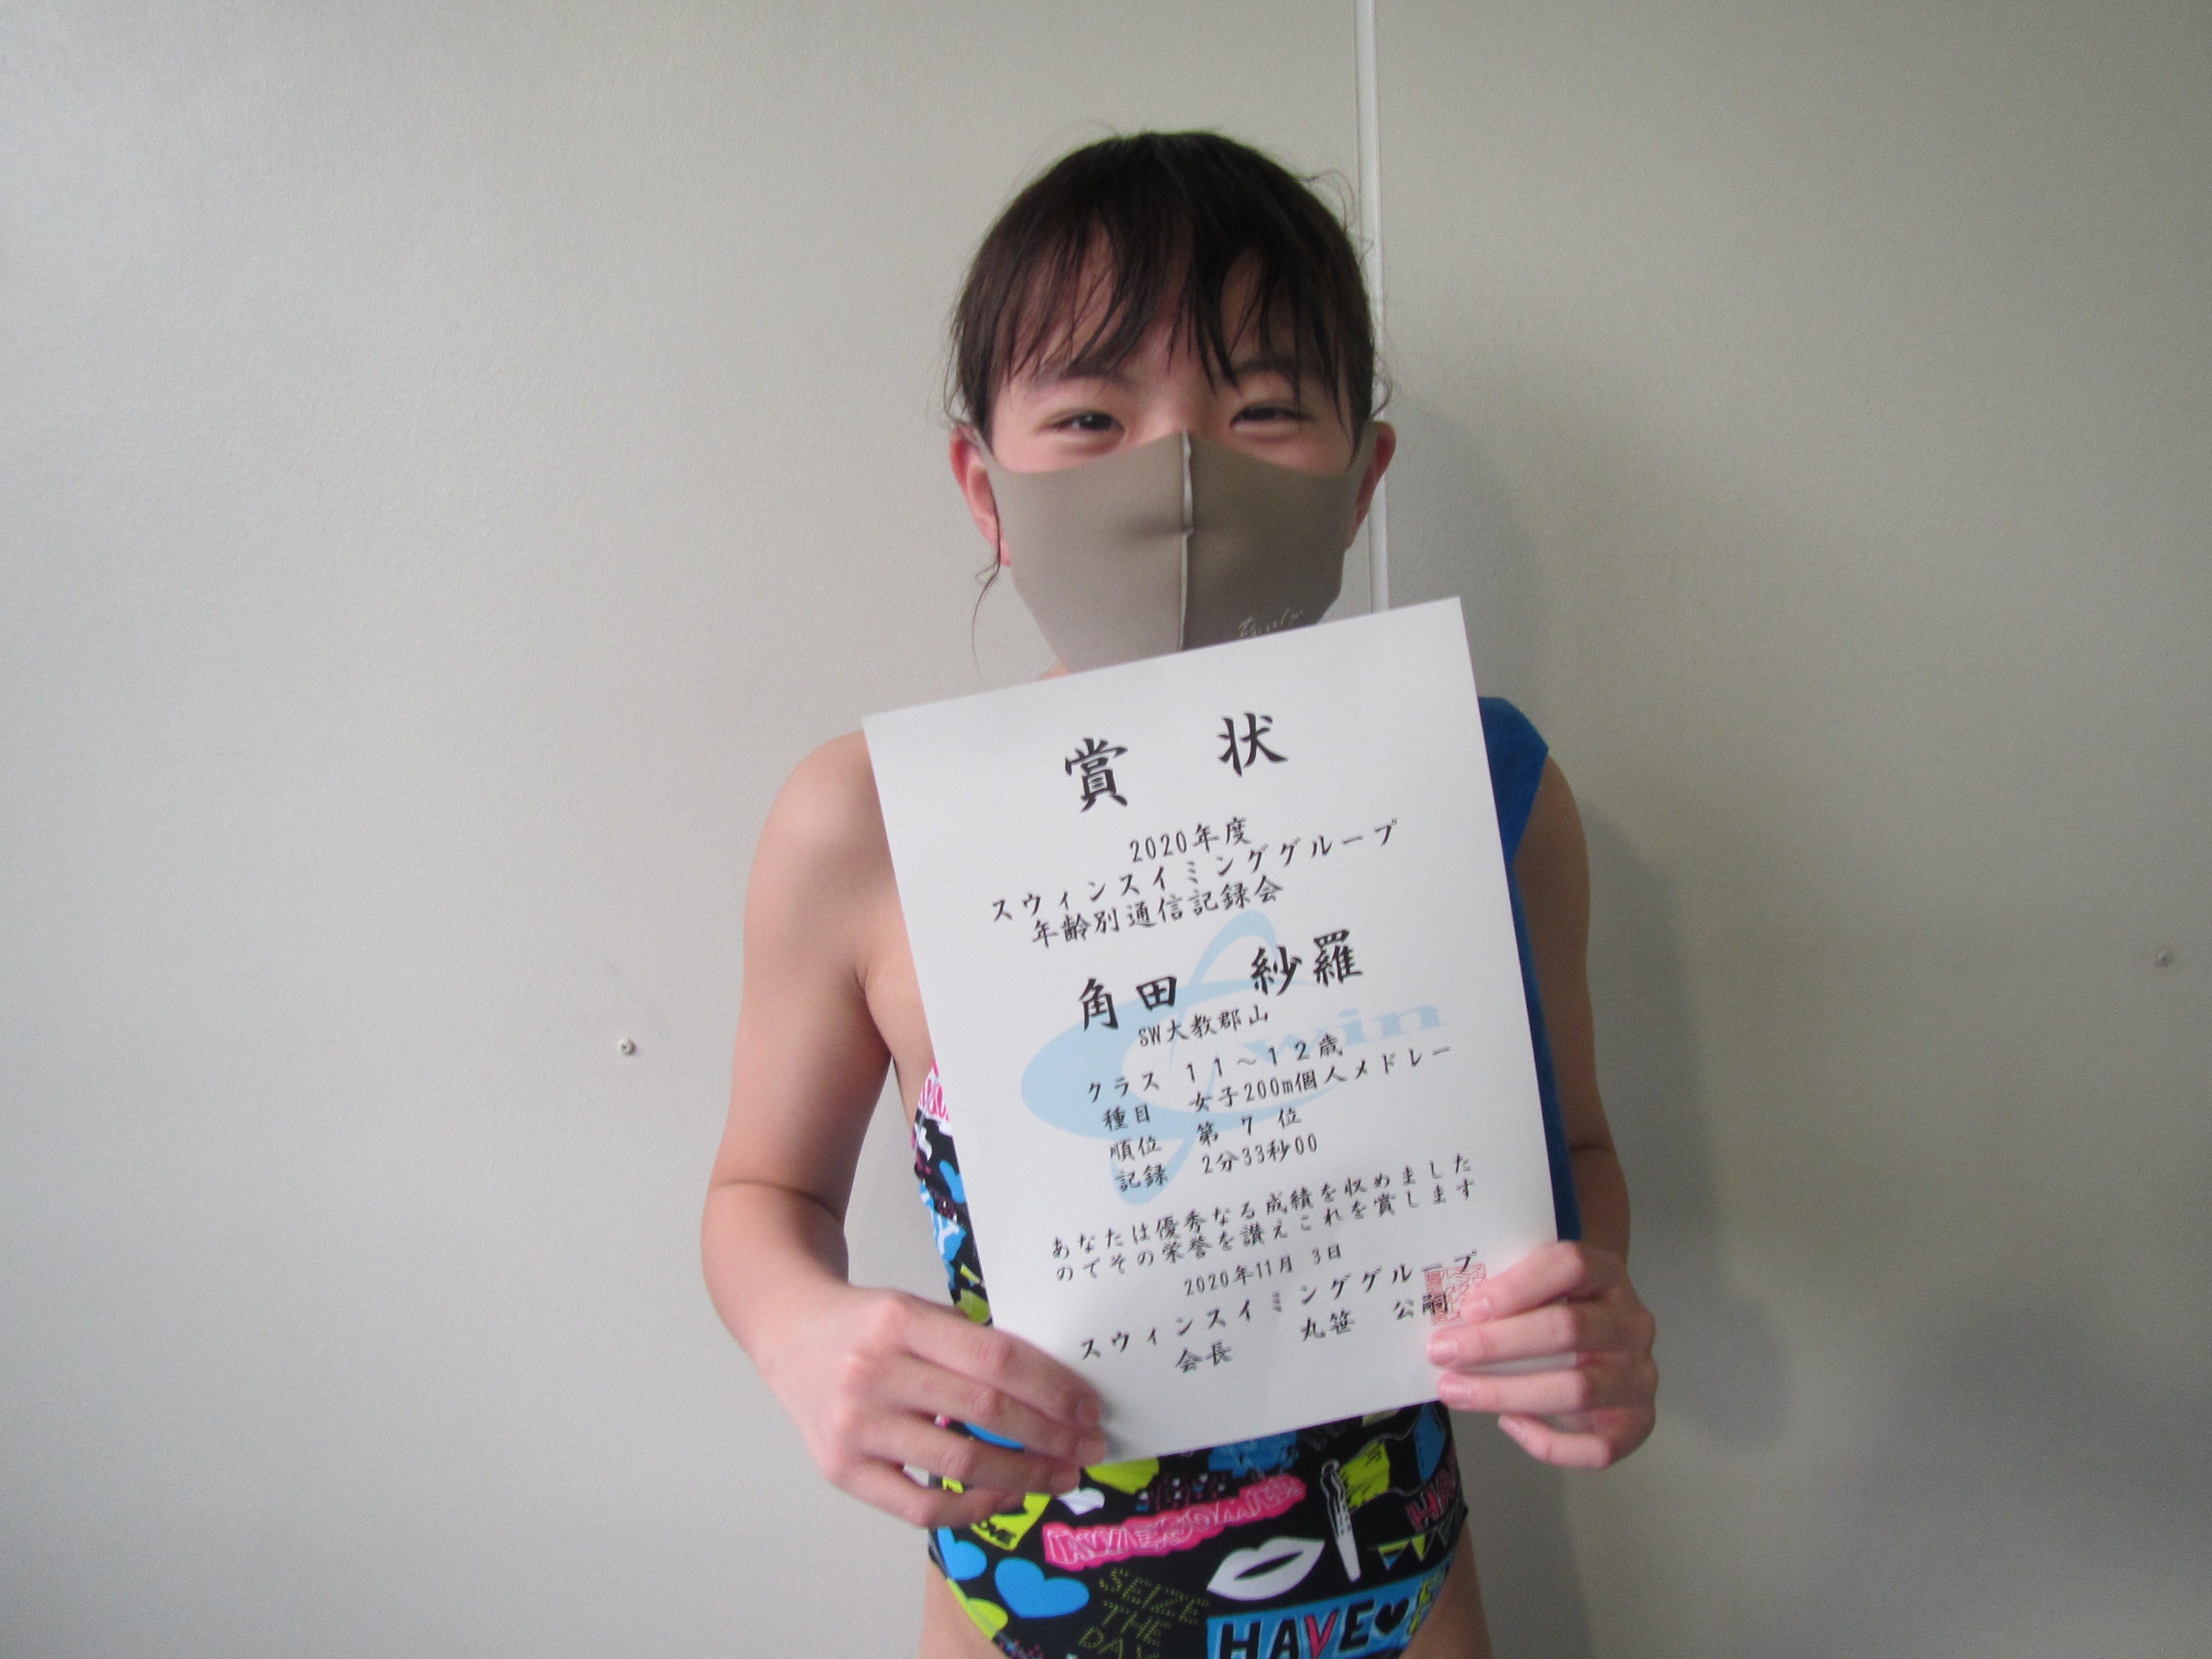 賞 状
2020年度
スウィンスイミンググループ
年齢別通信記録会
角田 紗羅
SW大教郡山
クラス 11～12歳
種目 女子200m個人メドレー
順位 第 7 位
記録 2分33秒00
あなたは優秀なる成績を収めました
のでその栄誉を讃えこれを賞します
2020年11月 3日
スウィンスイミンググループ
会長 丸笹 公嗣
Swin
AWESOME
SEIZE
THE
DAY
HAVE